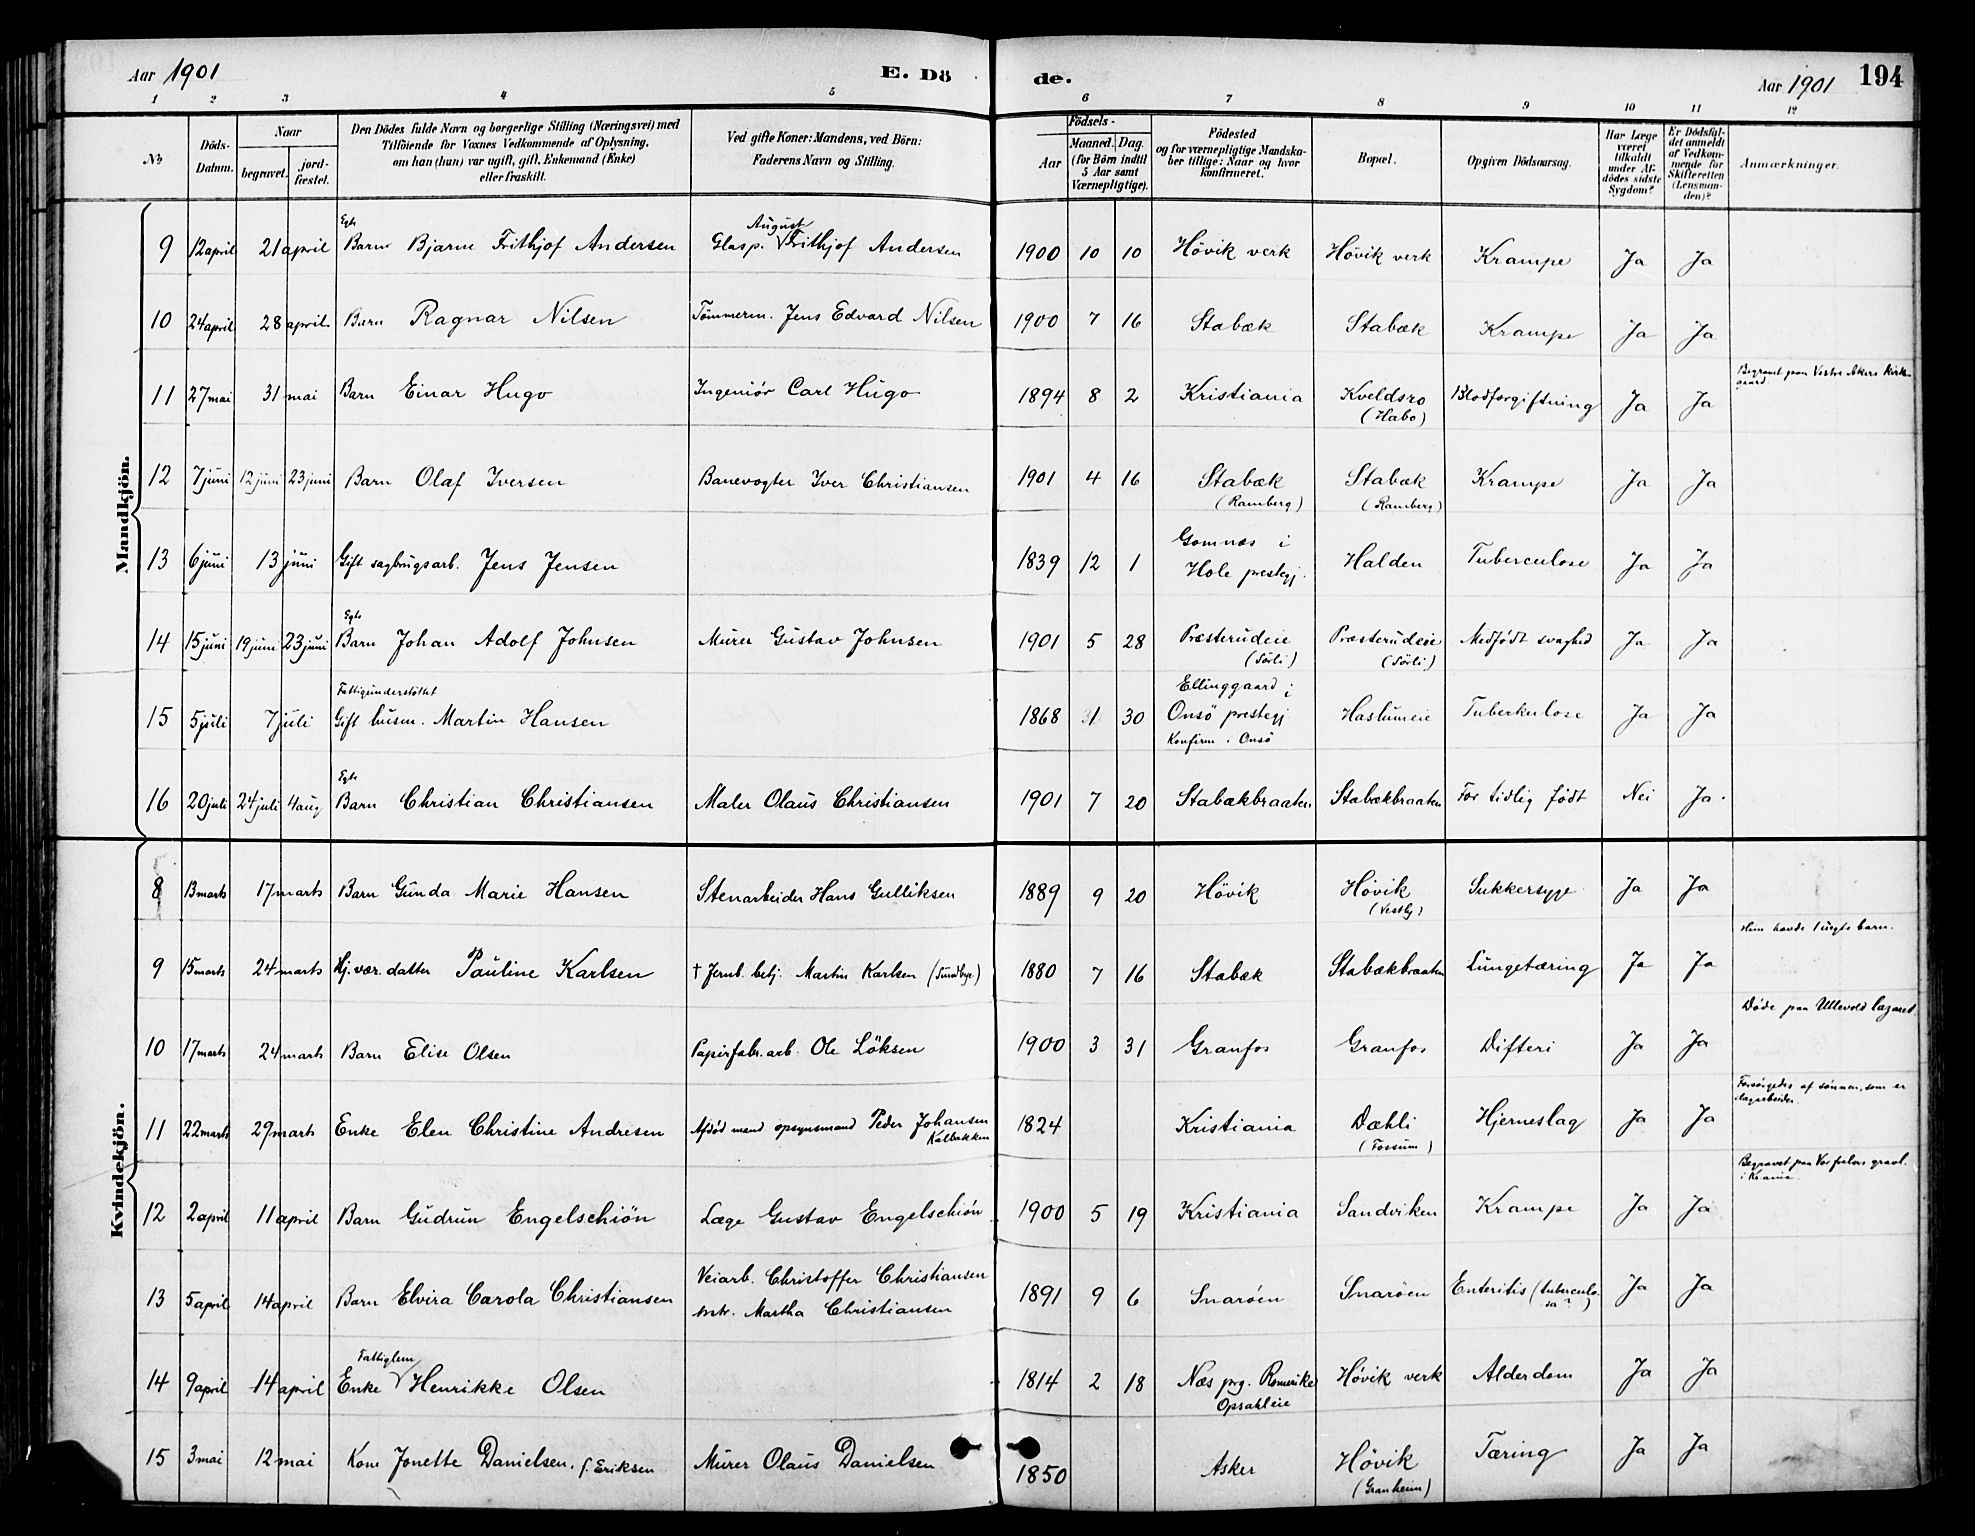 Aar 1901 E. Dö de. Aar 1901 194
1 2 3 4 5 6 7 8 9 10 11 12
No
Döds-Datum.
Naar
begravet.
jord-fæstet.
Den Dödes fulde Navn og borgerlige Stilling (Næringsvei) med
Tilföiende for Voxnes Vedkommende af Oplysning,
om han (hun) var ugift, gift, Enkemand (Enke)
eller fraskilt.
Ved gifte Koner: Mandens, ved Börn:
Faderens Navn og Stilling.
Födsels-
Aar
Maaned. Dag.
(for Börn indtil
5 Aar samt
Værnepligtige).
Födested
og for værnepligtige Mandska-
ber tillige: Naar og hvor
konfirmeret.
Bopæl.
Opgiven Dödsaarsag.
Har Læge
været
tilkaldt
under Af-
dödes sidste
Sygdom?
Er Dödsfal-
det anmeldt
af Vedkom-
mende for
Skifteretten
(Lensman-
den)?
Anmærkninger.
Mandkjön.
9 12 april 21 april Egte Barn Bjarne Frithjof Andersen Glasp. August Frithjof Andersen 1900 10 10 Hövik verk Hövik verk Krampe Ja Ja
10 24 april 28 april Barn Ragnar Nilsen Tömmerm. Jens Edvard Nilsen 1900 7 16 Stabæk Stabæk Krampe Ja Ja
11 27 mai 31 mai Barn Einar Hugo Ingeniör Carl Hugo 1894 8 2 Kristiania Kveldsro (Habo) Blodforgiftning Ja Ja Begravet paa Vestre Akers Kirke-
gaard
12 7 juni 12 juni 23 juni Barn Olaf Iversen Banevogter Iver Christiansen 1901 4 16 Stabæk (Ramberg) Stabæk (Ramberg) Krampe Ja Ja
13 6 juni 13 juni Gift sagbrugsarb. Jens Jensen 1839 12 1 Gomnæs i Hole prestegj. Halden Tuberculose Ja Ja
14 15 juni 19 juni 23 juni Egte Barn Johan Adolf Johnsen Murer Gustav Johnsen 1901 5 28 Præsterudeie (Sörli) Præsterudeie (Sörli) Medfödt svaghed Ja Ja
15 5 juli 7 juli Fattigunderstöttet Gift husm. Martin Hansen 1868 1 30 Ellinggaard i Onsö prestegj Konfirm i Onsö Haslumeie Tuberkulose Ja Ja
16 20 juli 24 juli 4 aug Egte Barn Christian Christiansen Maler Olaus Christiansen 1901 7 20 Stabækbraaten Stabækbraaten For tidlig födt Nei Ja.
Kvindekjön.
8 13 marts 17 marts Barn Gunda Marie Hansen Stenarbeider Hans Gulliksen 1889 9 20 Hövik Hövik (Vestby) Sukkersyge Ja Ja
9 15 marts 24 marts Hj. vær. datter Pauline Karlsen † Jernb. betj. Martin Karlsen (Sundbye) 1880 7 16 Stabæk Stabækbraaten Lungetæring Ja Ja Hun havde 1 uegte barn.
10 17 marts 24 marts Barn Elise Olsen Papirfabr. arb. Ole Löksen 1900 3 31 Granfos Granfos Difteri Ja Ja Döde paa Ullevold lazaret
11 22 marts 29 marts Enke Elen Christine Andresen Afdöd mand opsynsmand Peder Johansen Kalbakken 1824 Kristiania Dæhli (Fossum) Hjerneslag Ja Ja Forsörgedes af sönnen, som er
dagarbeider.
12 2 april 11 april Barn Gudrun Engelschiön Læge Gustav Engelschiön 1900 5 19 Kristiania Sandviken Krampe Ja Ja Begravet paa Vor frelsers gravl.
i Kr.ania.
13 5 april 14 april Barn Elvira Carola Christiansen Veiarb. Christoffer Christiansen
Martha Christiansen 1891 9 6 Snaröen Snaröen Enteritis (tuberculo-
sa?) Ja Ja
14 9 april 14 april Enke Fattiglem Henrikke Olsen 1814 2 18 Næs prg. Romerike Opsahleie Hövik verk Alderdom Ja Ja
15 3 mai 12 mai Kone Jonette Danielsen, f. Eriksen Murer Olaus Danielsen 1850 Asker Hövik (Granheim) Tæring Ja Ja